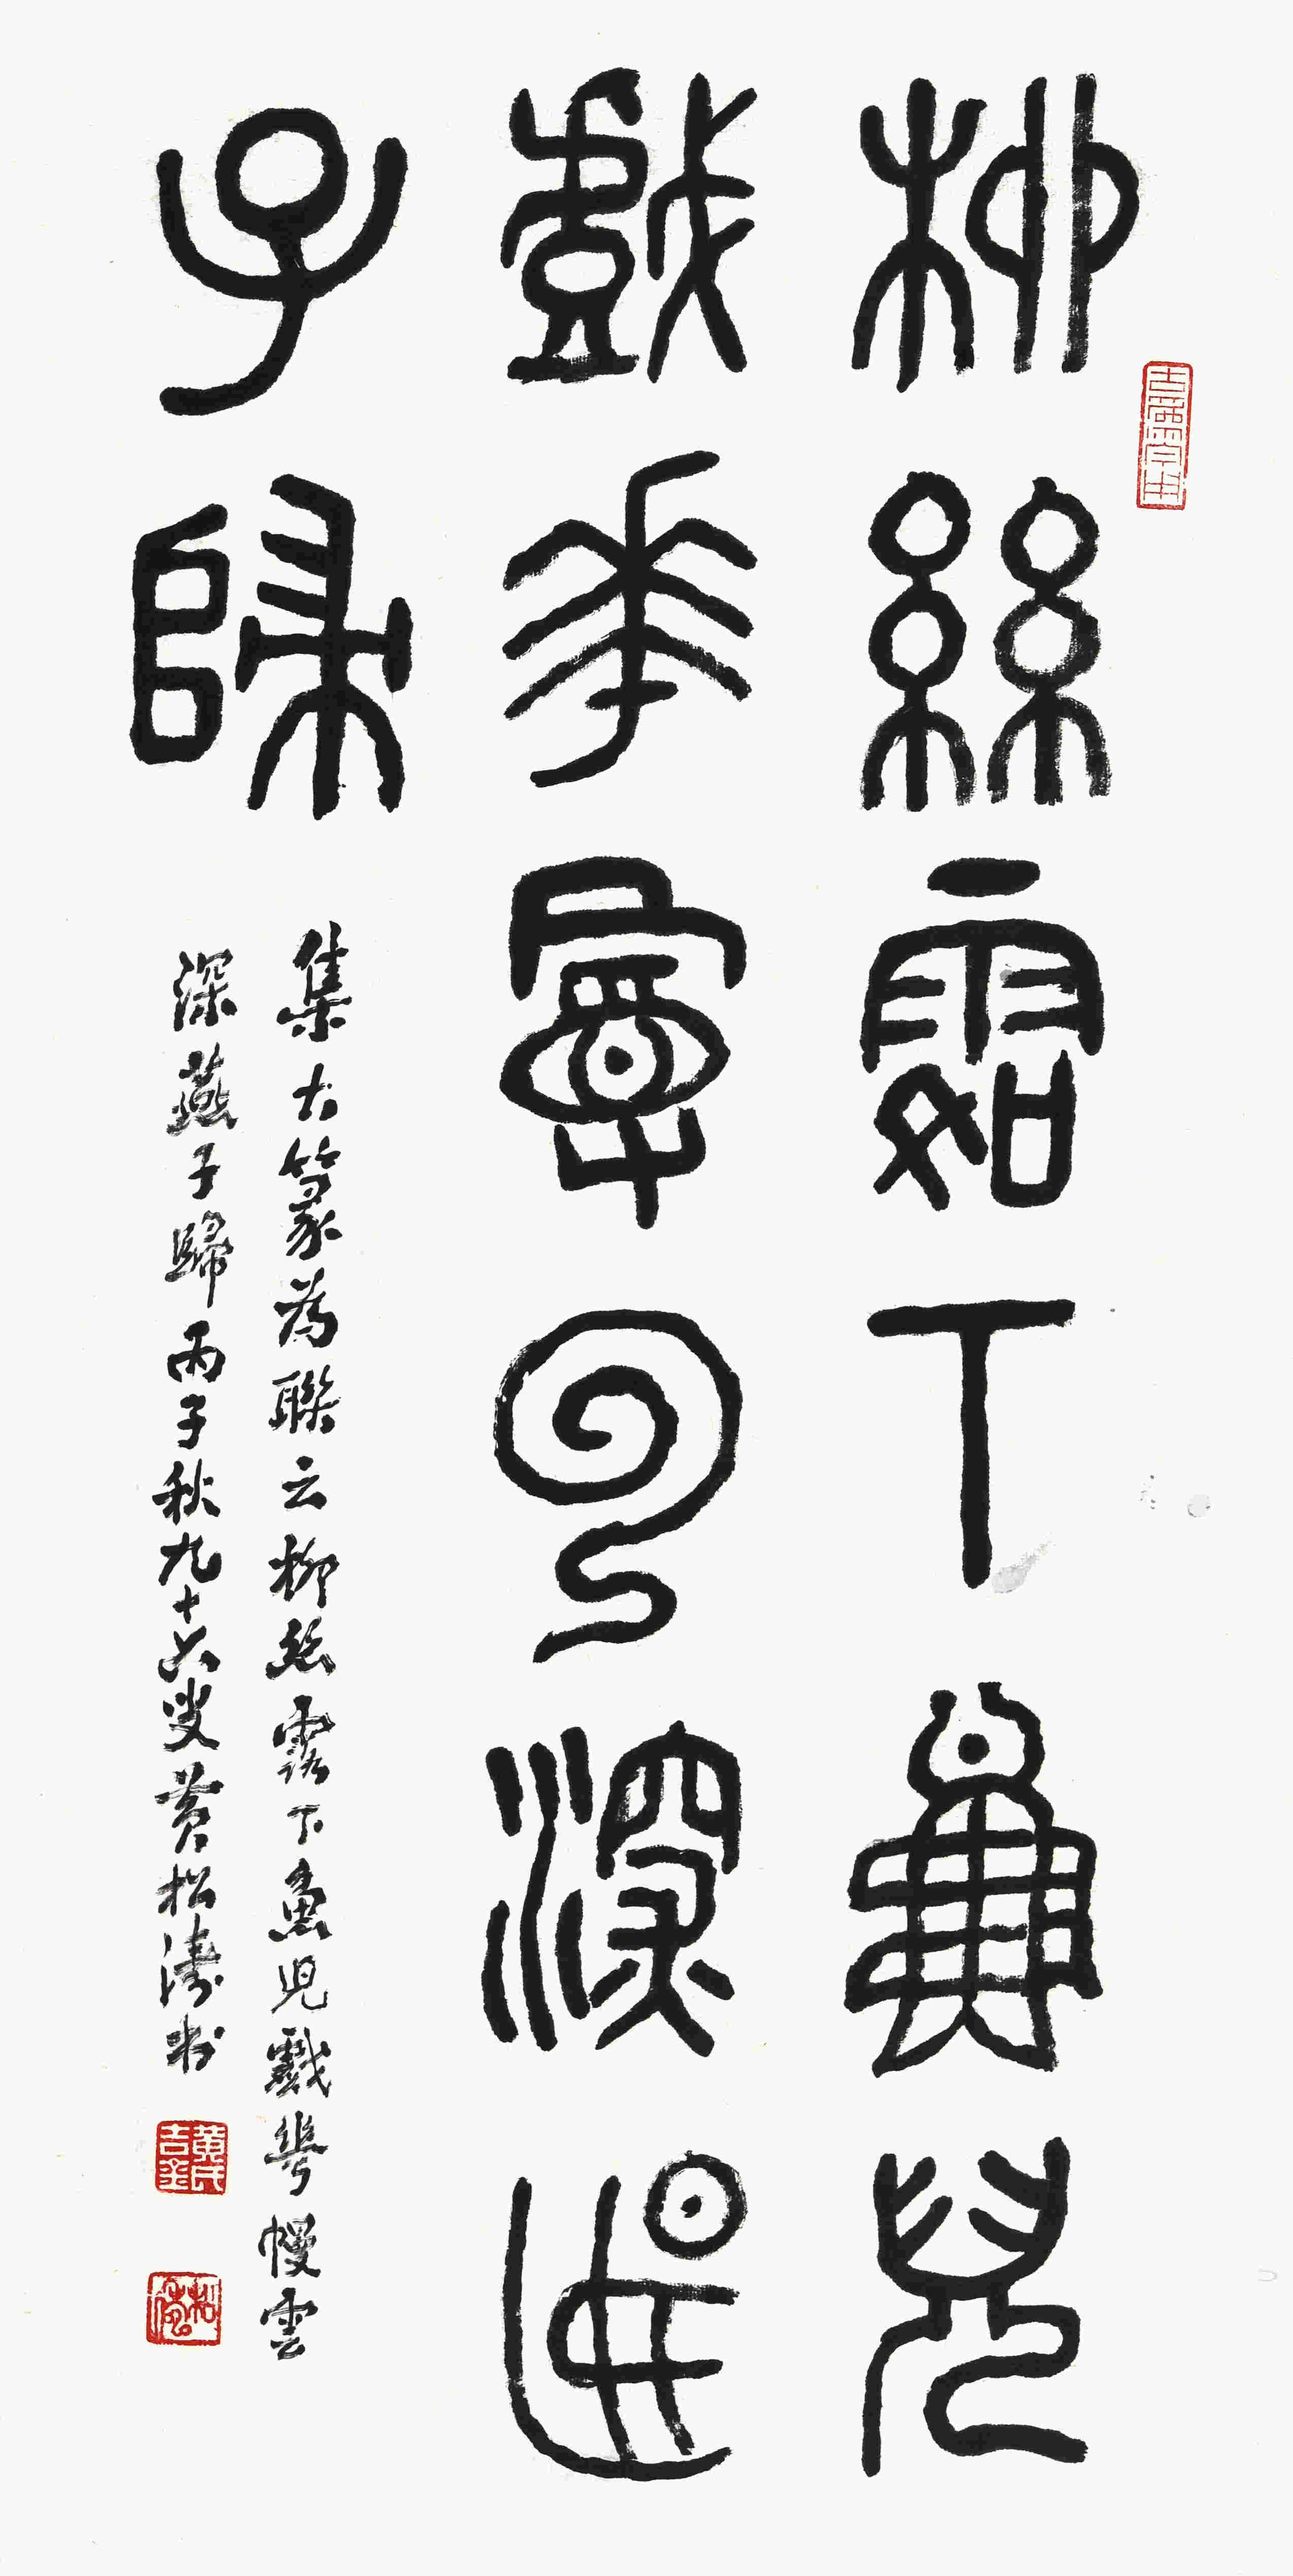 柳絲露下魚兒
戲華幔雲深燕
子歸
集古篆為聯云柳絲露下魚兒戲華幔雲
深燕子歸丙子秋九十六叟黃松濤書